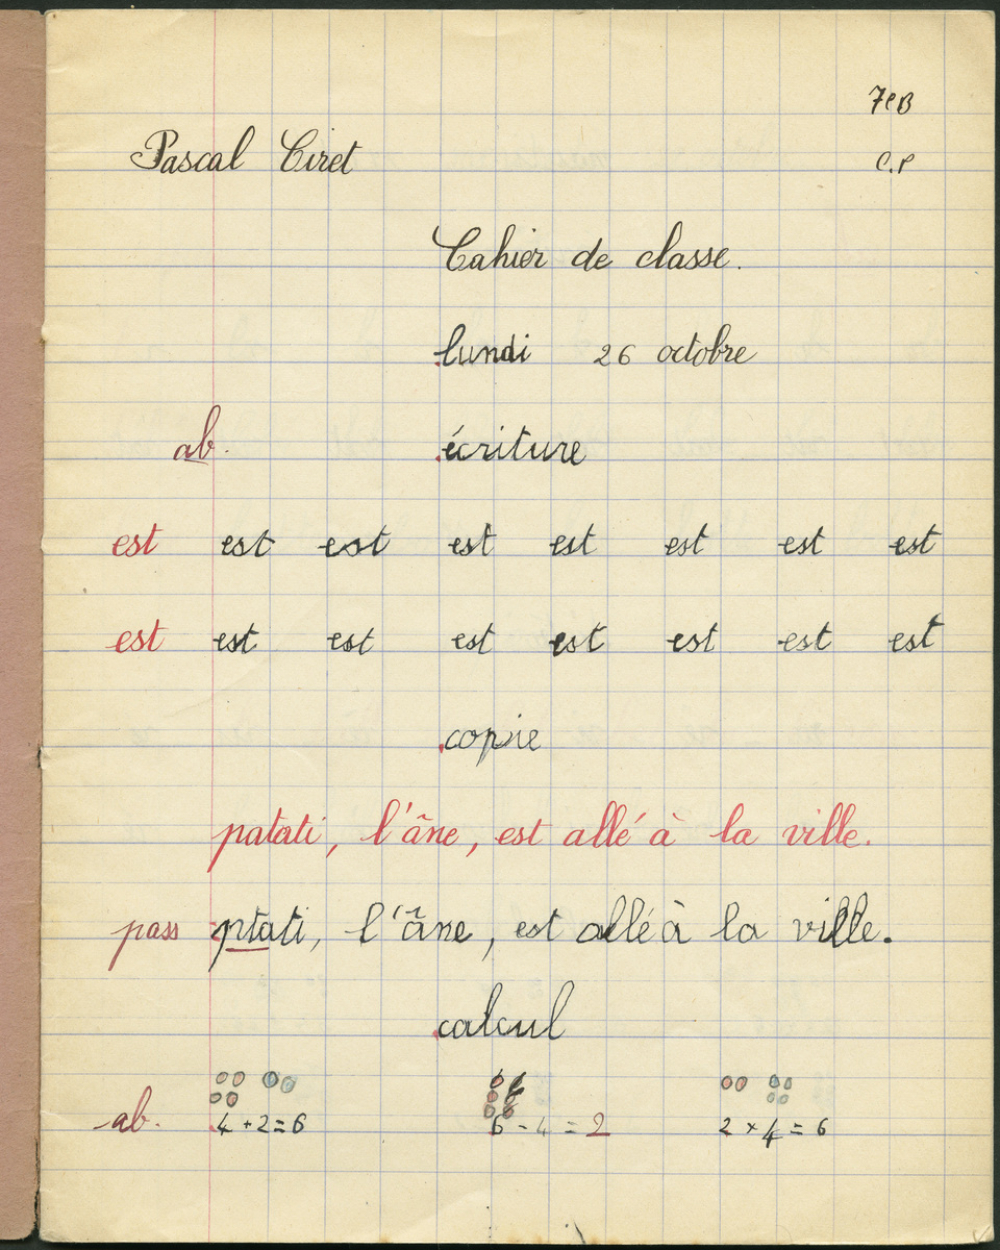 7eB
Pascal Ciret
C.P
Cahier de classe.
lundi 26 octobre
ab. écriture
est est est est est est est est
est est est est est est est est
copie
patati, l'âne, est allé à la ville.
pass ptati, l'âne, est allé à la ville.
calcul
ab. 4 + 2 = 6 6 - 4 = 2 2 × 4 = 6